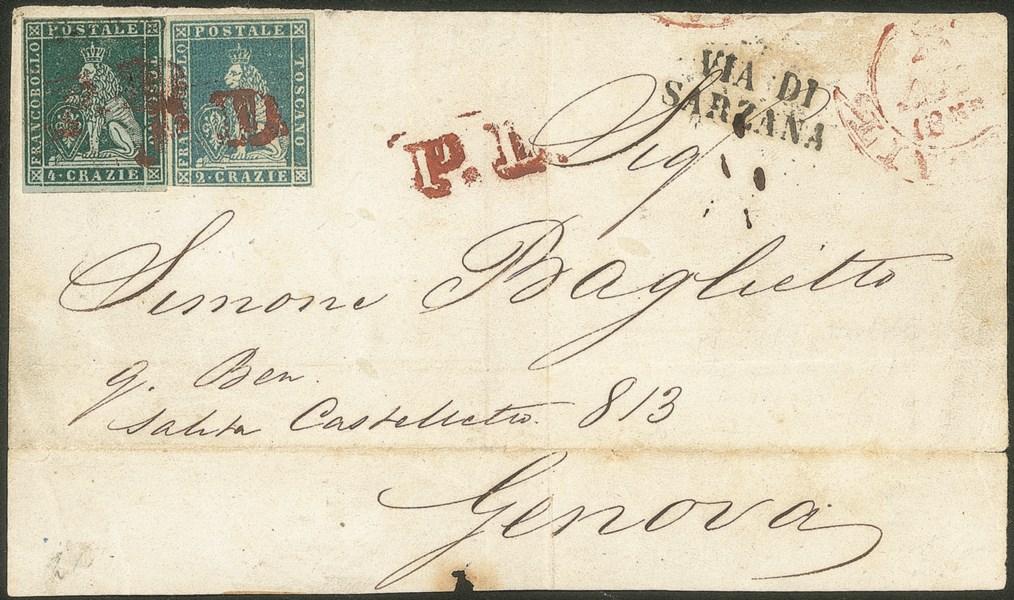 POSTALE
FRANCOBOLLO
4 · CRAZIE
POSTALE
TOSCANO
2 · CRAZIE
P. D.
P. D.
VIA DI
SARZANA
Sigr
Simone Baglietto
q. Ben.
Salita Castelletto. 813
Genova